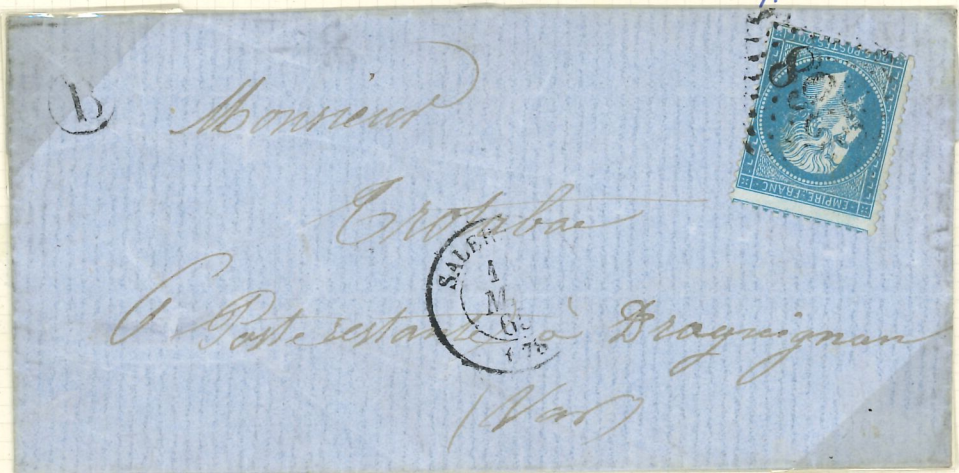 B
Monsieur
Trotabas
Poste restante à Draguignan
(Var)
SALER
1
65
(78
EMPIRE FRANC
POSTES